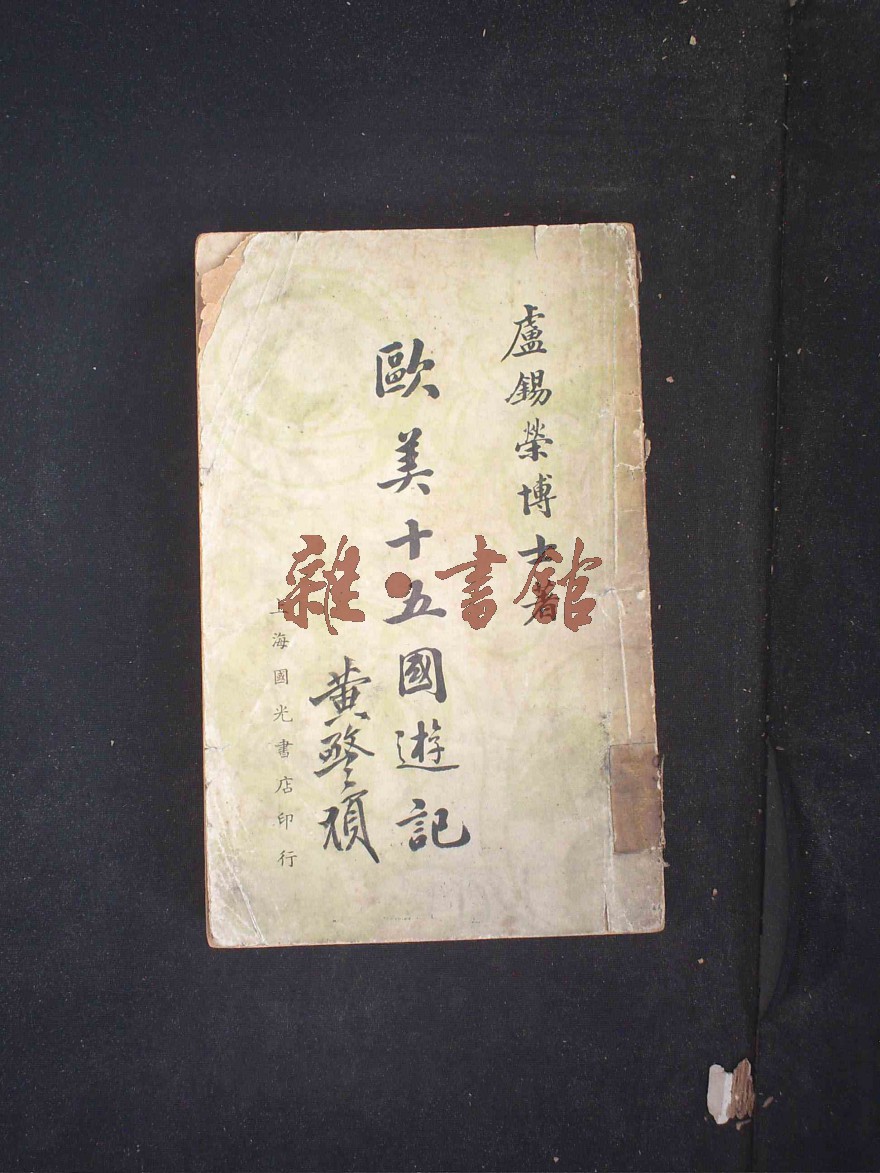 盧錫榮博士著
歐美十五國遊記
黄警頑
上海國光書店印行
雜·書館